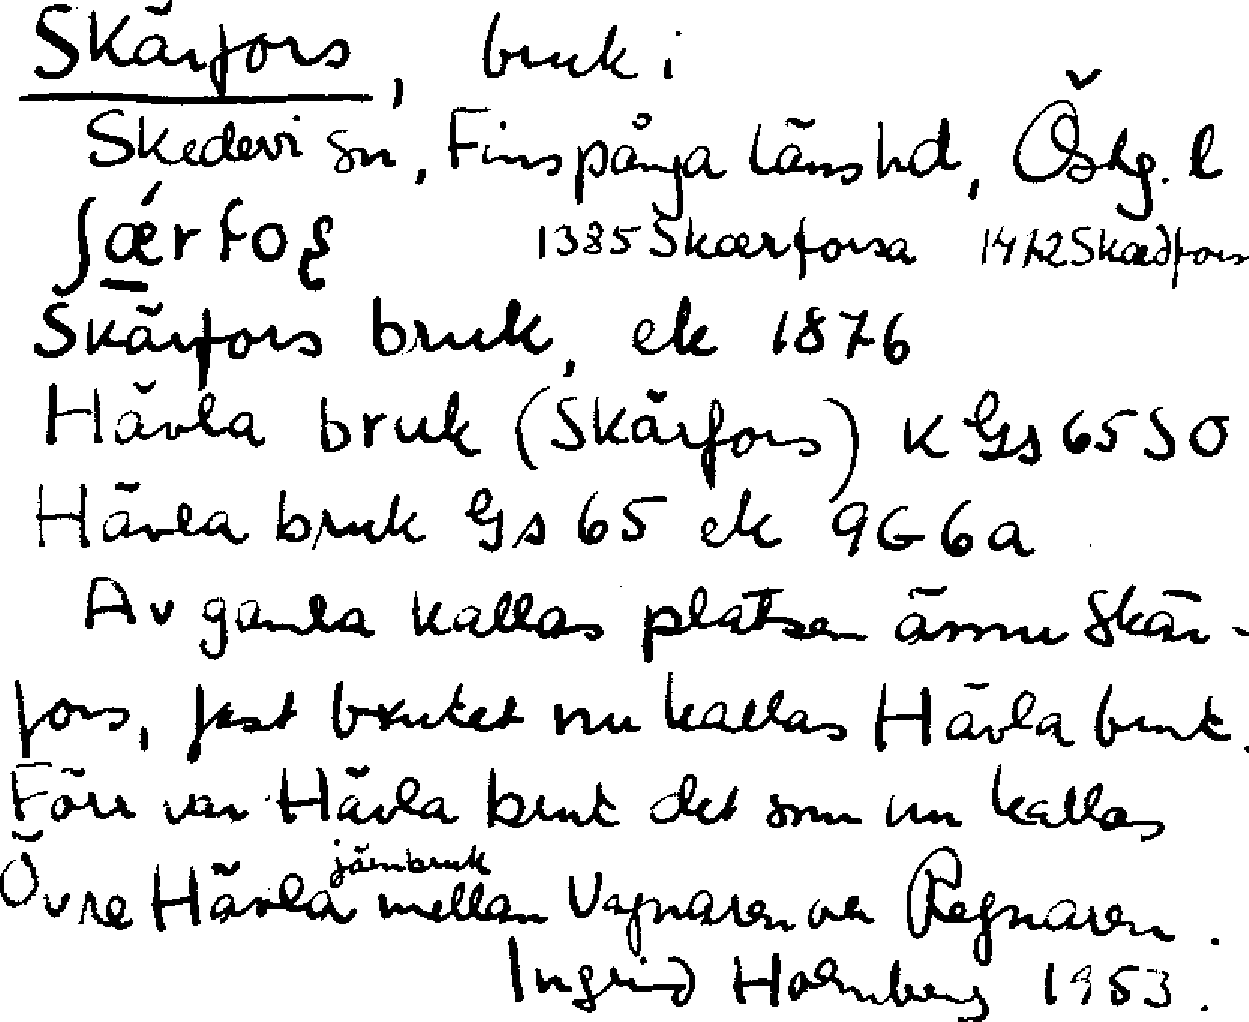 Skärfors, bruk i
Skedevi sn, Finspånga länshd, Östg. l
ʃǽrfoʂ 1385 Skærforsa 1412 Skædfors
Skärfors bruk, ek 1876
Hävla bruk (Skärfors) k Gs 65 SO
Hävla bruk Gs 65 ek 9G 6a
Av gamla kallas platsen ännu Skär-
fors, fast bruket nu kallas Hävla bruk.
Förr var Hävla bruk det som nu kallas
Övre Hävla järnbruk mellan Vagnaren och Regnaren.
Ingrid Holmberg 1953.